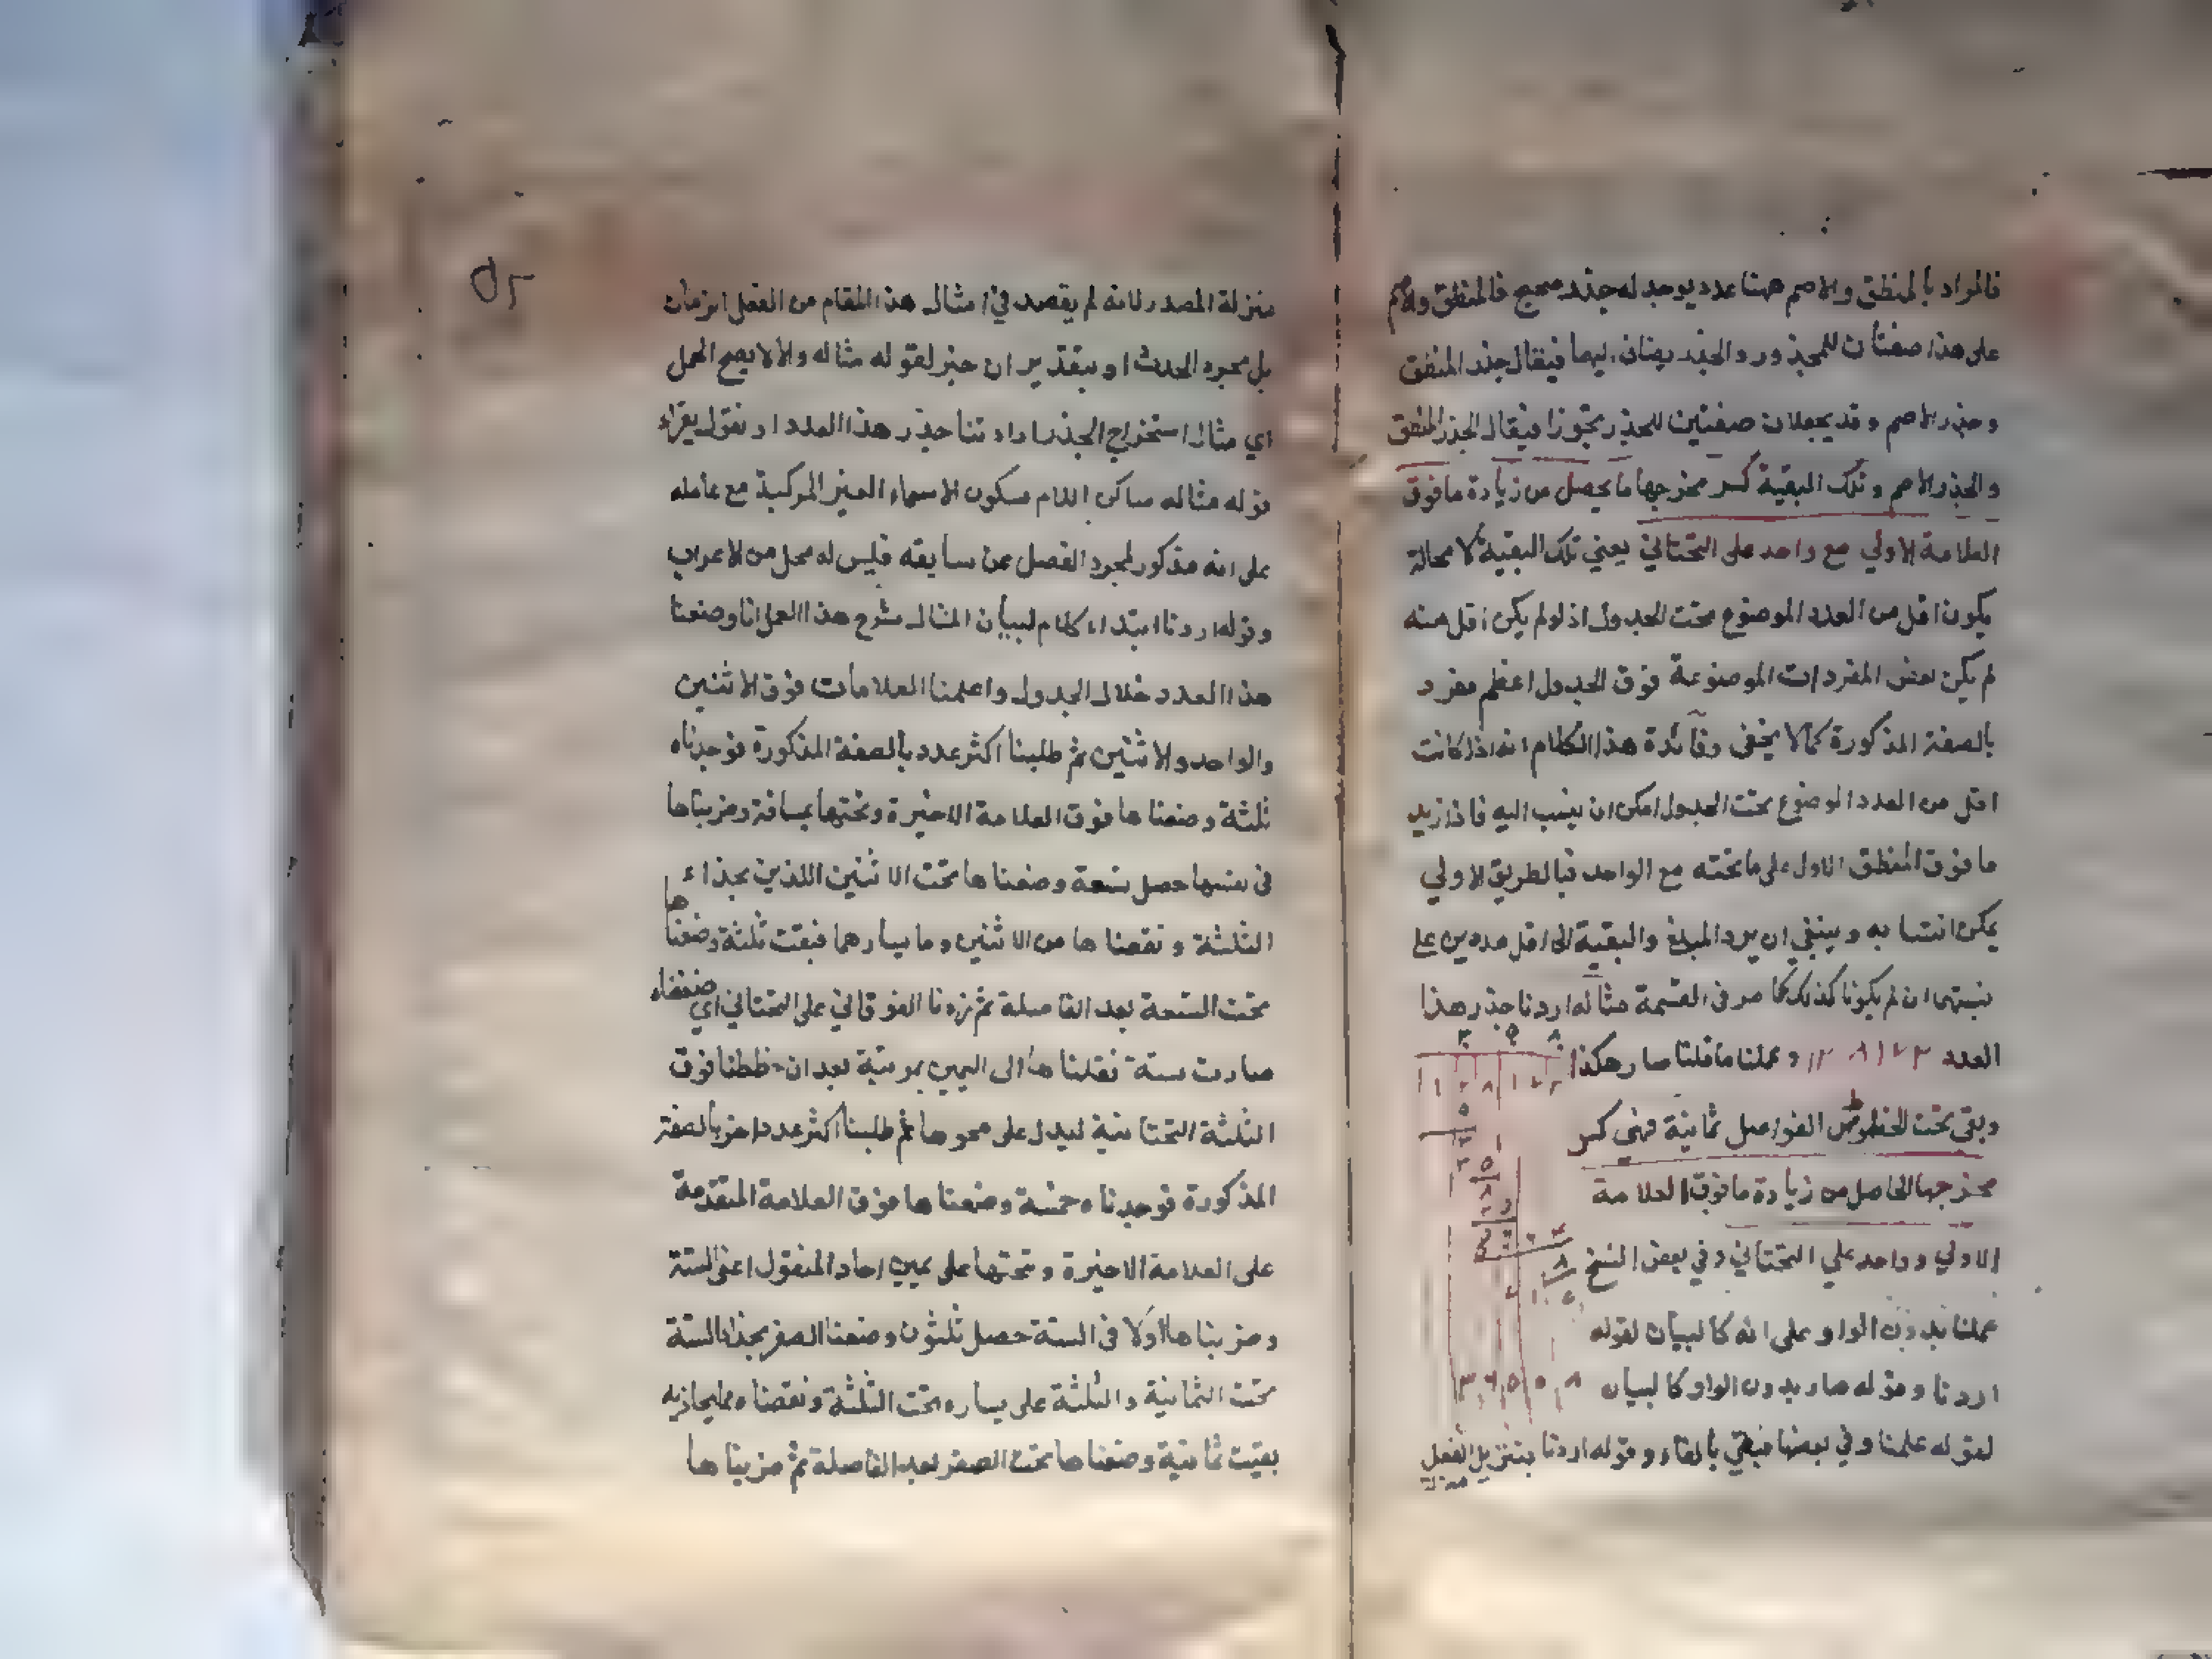 فالمراد بالمنطق والاصم ههنا عدد يوجد له جذر صحيح فالمنطق والاصم
على هذا صفتان للمجذور والجذر يضاف اليهما فيقال جذر المنطق
وجذر الاصم وقد يجعلان صفتين للجذر تجوزا فيقال الجذر المنطق
والجذر الاصم وتلك البقية كسر مخرجها ما يحصل من زيادة ما فوق
العلامة الاولي مع واحد على التحتاني يعني تلك البقية لا محالة
يكون اقل من العدد الموضوع تحت الجدول اذ لو لم يكن اقل منه
لم يكن بعض المفردات الموضوعة فوق الجدول اعظم مفرد
بالصفة المذكورة كما لا يخفى وفائدة هذا الكلام انه اذا كانت
اقل من العدد الموضوع تحت الجدول امكن ان ينسب اليه فاذا زيد
ما فوق المنطق الاول على ما تحته مع الواحد فبالطريق الاولي
يمكن انتسابه وينبغي ان يرد المبلغ والبقية الى اقل عددين على
نسبتهما ان لم يكونا كذلك كما مر في القسمة مثاله اردنا جذر هذا
العدد ١٢٨١٧٢ وعملنا ما قلنا صار هكذا
وبقي تحت الخطوط الفواصل ثمانية فهي كسر
مخرجها الحاصل من زيادة ما فوق العلامة
الاولي وواحد علي التحتاني وفي بعض النسخ
عملنا بدون الواو على انه كالبيان لقوله
اردنا وقوله صار بدون الواو كالبيان
لقوله علمنا وفي بعضها فبقي بالفاء وقوله اردنا بتنزيل الفعل
منزلة
٥٢
منزلة المصدر لانه لم يقصد في امثال هذا المقام من الفعل الزمان
بل مجرد الحدث او بتقدير ان خبر لقوله مثاله والا لا يصح الحمل
اي مثال استخراج الجذر ارادتنا جذر هذا العدد او نقول يقراء
قوله مثاله ساكن اللام سكون الاسماء الغير المركبة مع عامله
على انه مذكور لمجرد الفصل عن سابقه فليس له محل من الاعراب
وقوله اردنا ابتداء كلام لبيان المثال شرح هذا العمل انا وضعنا
هذا العدد خلال الجدول واعلمنا العلامات فوق الاثنين
والواحد والاثنين ثم طلبنا اكثر عدد بالصفة المذكورة فوجدناه
ثلثة وضعناها فوق العلامة الاخيرة وتحتها بمسافة وضربناها
في نفسها حصل تسعة وضعناها تحت الاثنين اللذين بحذاء
الثلثة ونقصناها من الاثنين وما يسارهما فبقت ثلثة وضعناها
تحت التسعة بعد الفاصلة ثم زدنا الفوقاني على التحتاني اي ضعفناه
صارت ستة نقلناها الى اليمين بمرتبة بعد ان خططنا فوق
الثلثة التحتانية ليدل على محوها ثم طلبنا اكثر عدد اخر بالصفة
المذكورة فوجدناه خمسة وضعناها فوق العلامة المتقدمة
على العلامة الاخيرة وتحتها على يمين احاد المنقول اعني الستة
وضربناها اولا في الستة حصل ثلثون وضعنا الصفر بحذاء الستة
تحت الثمانية والثلثة على يساره تحت الثلثة ونقصناه مما يحاذيه
بقيت ثمانية وضعناها تحت الصفر بعد الفاصلة ثم ضربناها